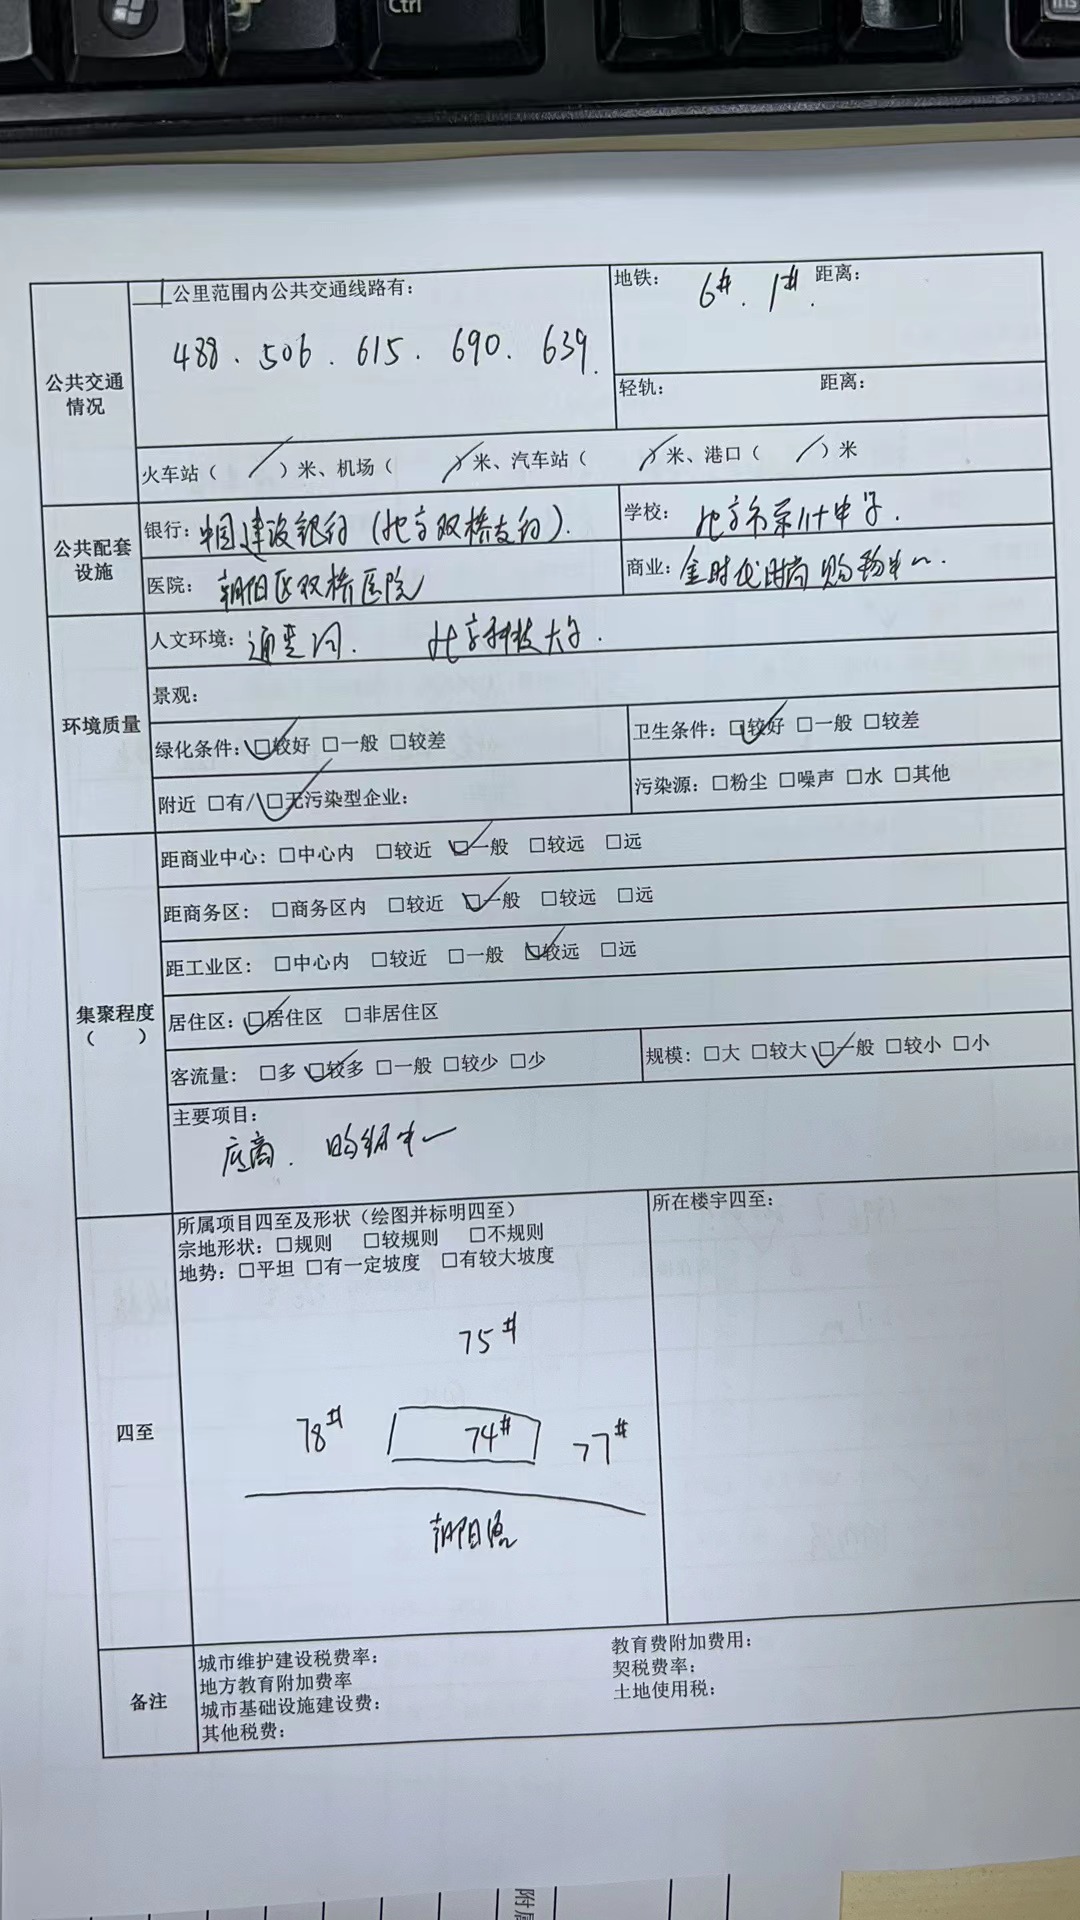 Ctrl
Ins
1公里范围内公共交通线路有：
488．506．615．690．639．
地铁： 6#．1#． 距离：
轻轨： 距离：
公共交通
情况
火车站（ / ）米、机场（ / ）米、汽车站（ / ）米、港口（ / ）米
公共配套
设施
银行：中国建设银行（北京双桥支行）．
学校：北京市第八十中学．
医院：朝阳区双桥医院
商业：金时代时尚购物中心．
环境质量
人文环境：通惠河． 北京科技大学．
景观：
绿化条件：☑较好 □一般 □较差
卫生条件：☑较好 □一般 □较差
附近 □有/☑无污染型企业：
污染源：□粉尘 □噪声 □水 □其他
集聚程度
（ ）
距商业中心：□中心内 □较近 ☑一般 □较远 □远
距商务区：□商务区内 □较近 ☑一般 □较远 □远
距工业区：□中心内 □较近 □一般 ☑较远 □远
居住区：☑居住区 □非居住区
客流量：□多 ☑较多 □一般 □较少 □少
规模：□大 □较大 ☑一般 □较小 □小
主要项目：
底商．购物中心
四至
所属项目四至及形状（绘图并标明四至）
宗地形状：□规则 □较规则 □不规则
地势：□平坦 □有一定坡度 □有较大坡度
所在楼宇四至：
75#
78# 74# 77#
朝阳路
备注
城市维护建设税费率：
地方教育附加费率
城市基础设施建设费：
其他税费：
教育费附加费用：
契税费率：
土地使用税：